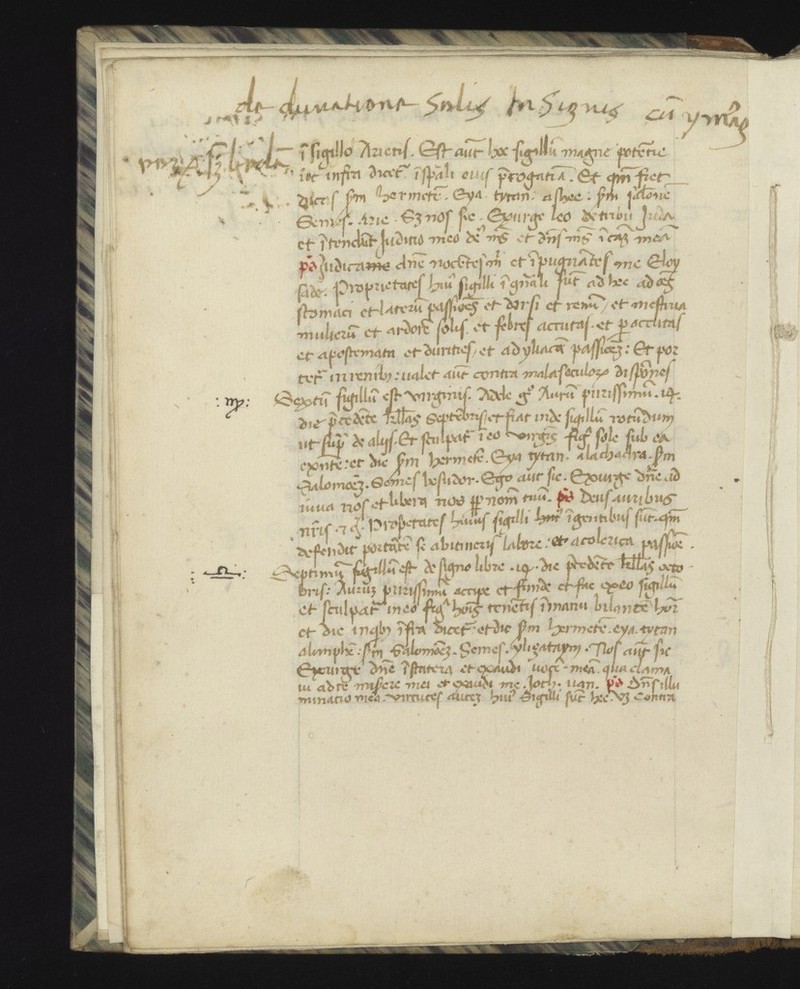 de duratione Solis In Signis cū ymag
ī sigillo Arietis. Est aūt hoc sigillū magne potētie
ut infra dicet᷑ ī spāli eius p̄rogatīa. Et qm̄ fiet
dicas s̄m hermetē. Eya tytan. ashee: s̄m
Semes. Arie. Sz nos sic. Exurge leo de tribu Juda
et ītende Juditio meo de᷒ m̄s et dn̄s m̄s ī cāz meā
p̄s Judica dn̄e nocētes m̄ et īpugnātes me Eloy
sade. Proprietates hui᷒ sigilli ī gn̄ali sūt ad hec ad oēs
stomaci et laterū passiōes et dorsi et renū, et mestrua
mulierū et ardorē solis. et febres accutas. et paccutas
et apostemata et durities, et ad yliacā passiōez: Et por
tet᷑ in renib᷒: valet aūt contra mala oculoꝝ dispōnes
: ♍ : Sextū sigillū est virginis. Accipe g᷒ Aurū purissimū .14.
die p̄cedēte kl̄las Septēbris et fiat inde sigillū rotūdum
ut sup̄ de alijs. Et sculpat᷑ ī eo virgīs fig᷑ sole sub ea
exn̄te: et dic s̄m hermetē. Eya tytan. alachadra. s̄m
Salomoēz. Semes besudor. Ego aūt sic. Exurge dn̄e ad
iuua nos et libera nos ꝓp nom̄ tuū. p̄s Deus auribus
nr̄is. ⁊ c̄. Prop̄etates huius sigilli hui᷒ ī gentibus sūt. qm̄
defendit portātē se ab itineris labore: et a colerica passiōe.
: ♎ : Septimū sigillū est de signo libre .14. die p̄cedēte kl̄las octo
bris: Aurūz purissimū accipe et funde et fac ex eo sigillū
et sculpat᷑ in eo fig᷑ hoīs tenētis ī manu bilancē hor̄
et die in qb᷒ īfra dicet᷑. et dic s̄m hermetē. eya. tytan
alimphe: s̄m Salomoēz. Semes. yligataym. Nos aūt sic
Exurge dn̄e ī statera et exaudi vocē meā. qua clama
ui ad te misere mei et exaudi me. Joth. uan. p̄s Dn̄s illu
minatio mea. virtutes autez hui᷒ Sigilli sūt hec. vz Contra